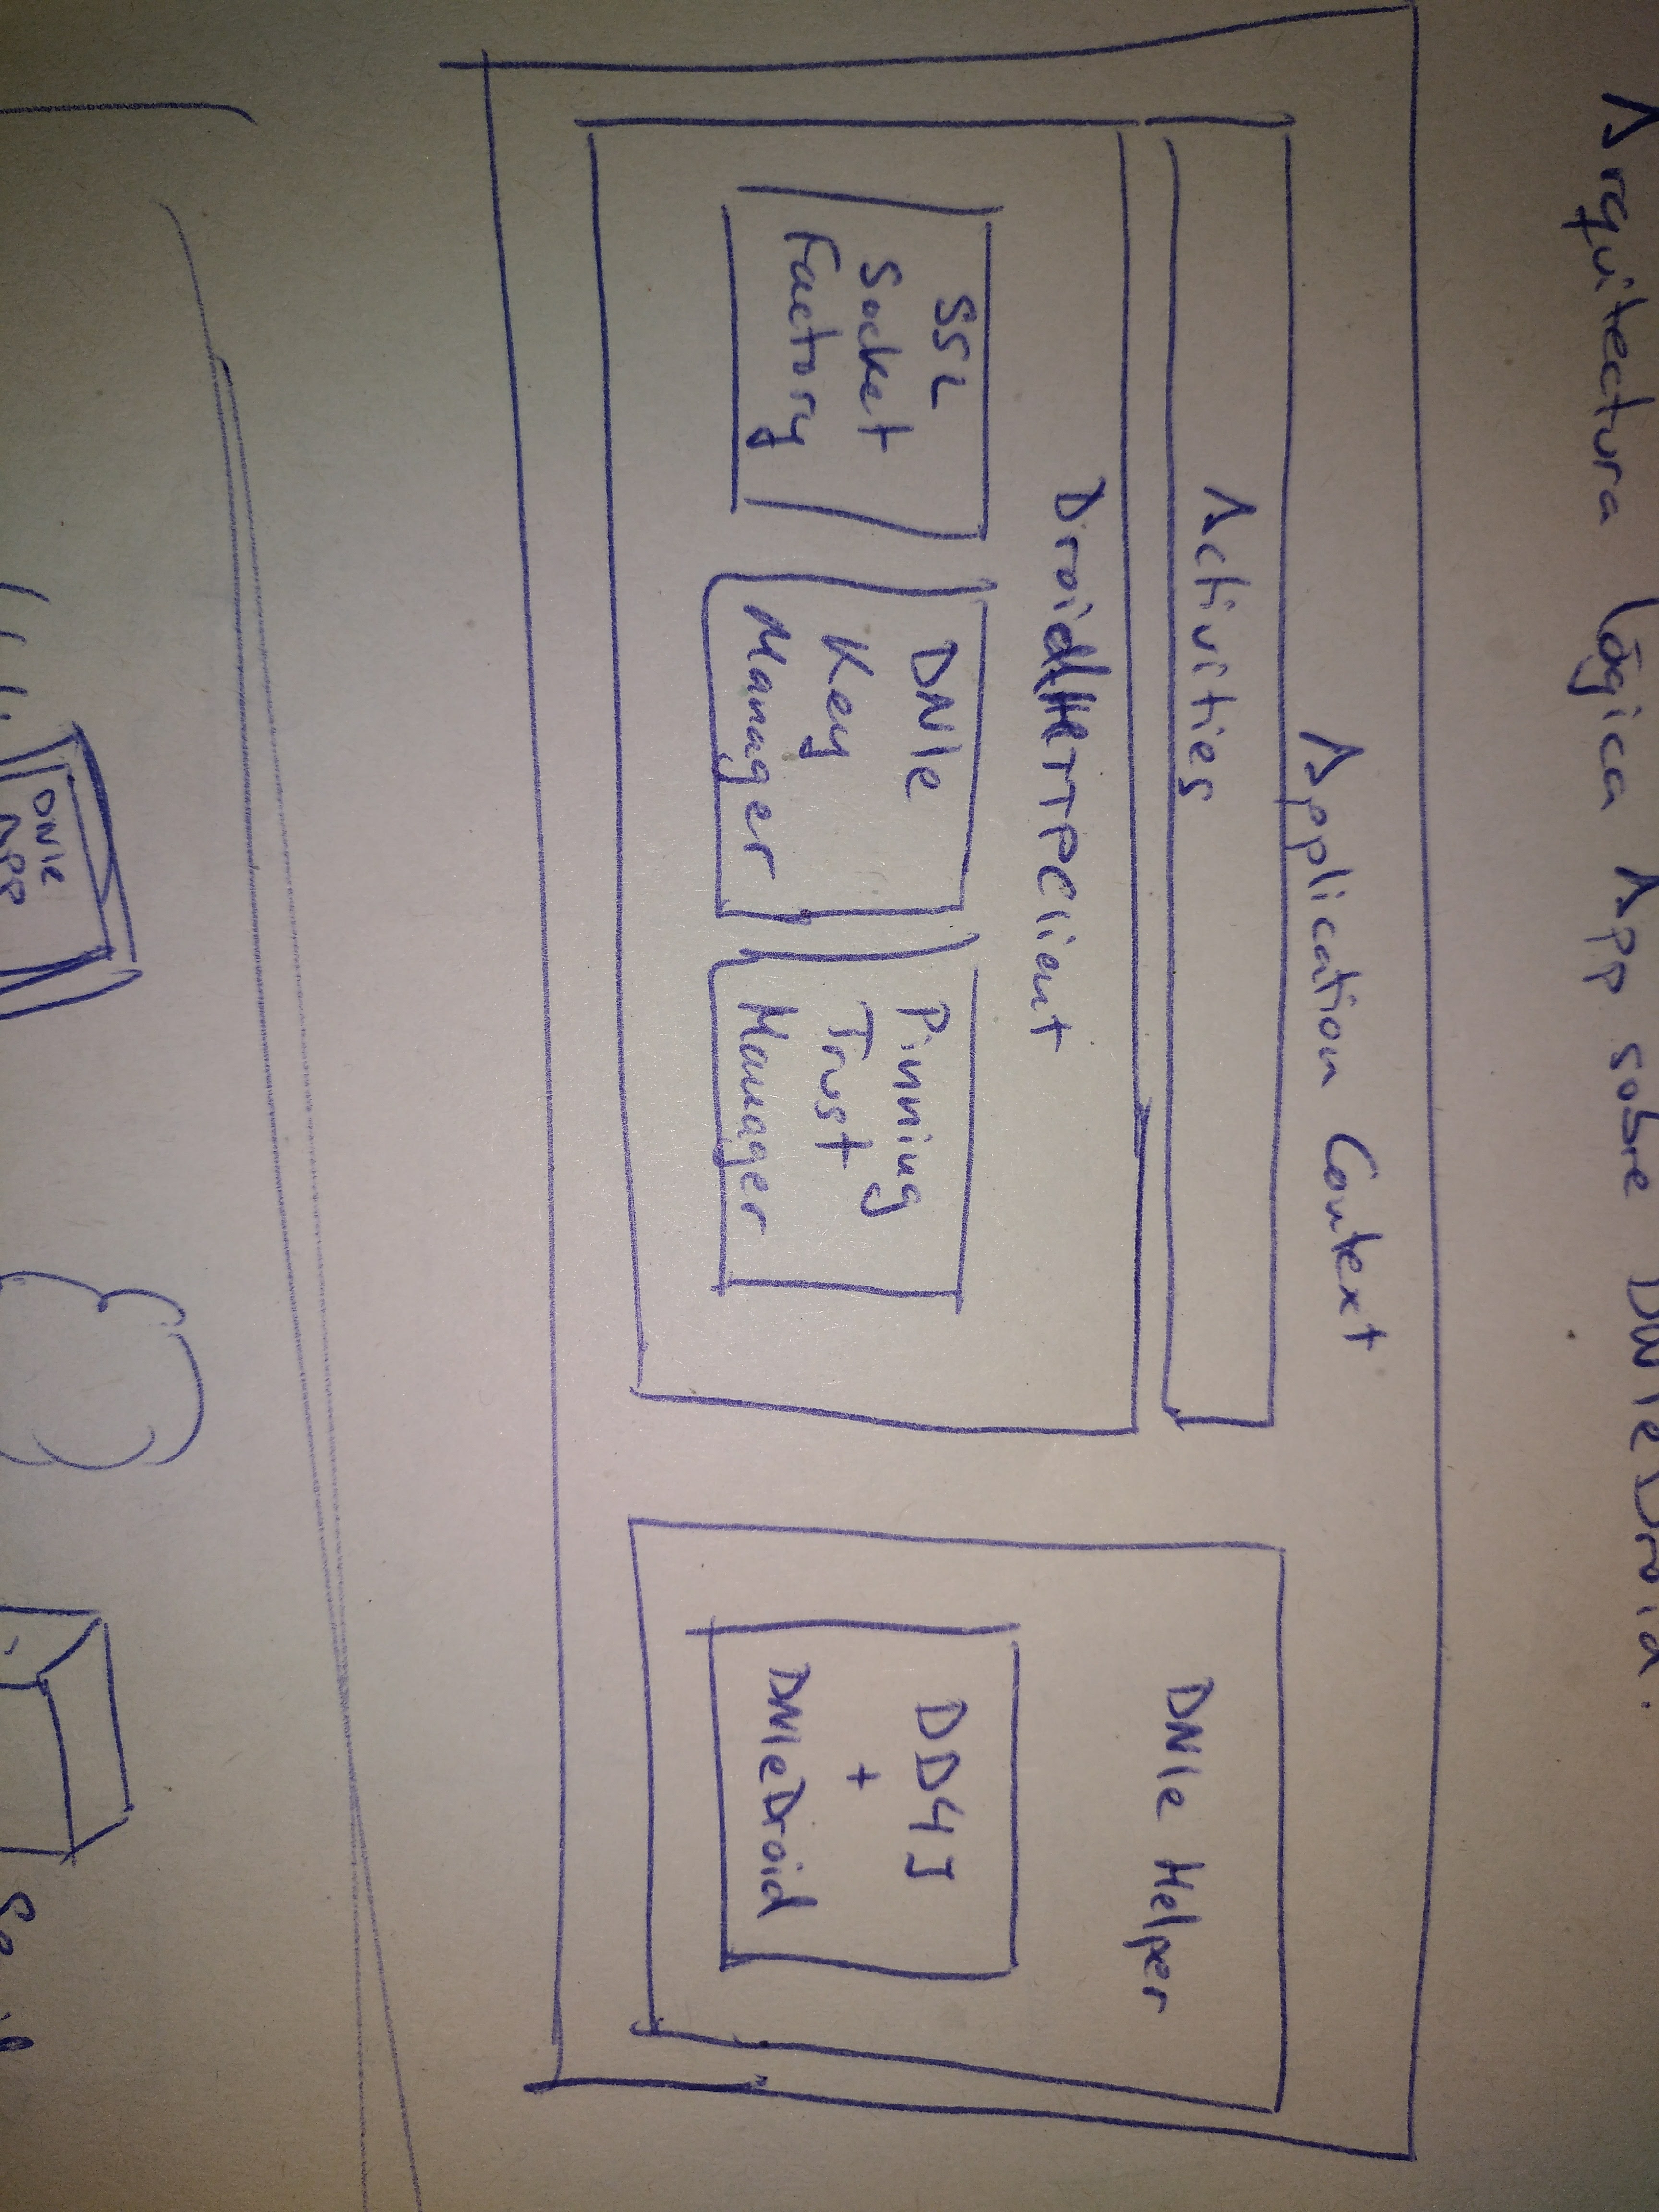 Arquitectura lógica App sobre DNIeDroid.
Application Context
Activities
DroidHTTPClient
SSL
Socket
Factory
DNIe
Key
Manager
Pinning
Trust
Manager
DNIe Helper
DD4J
+
DNIeDroid
DNIe
App